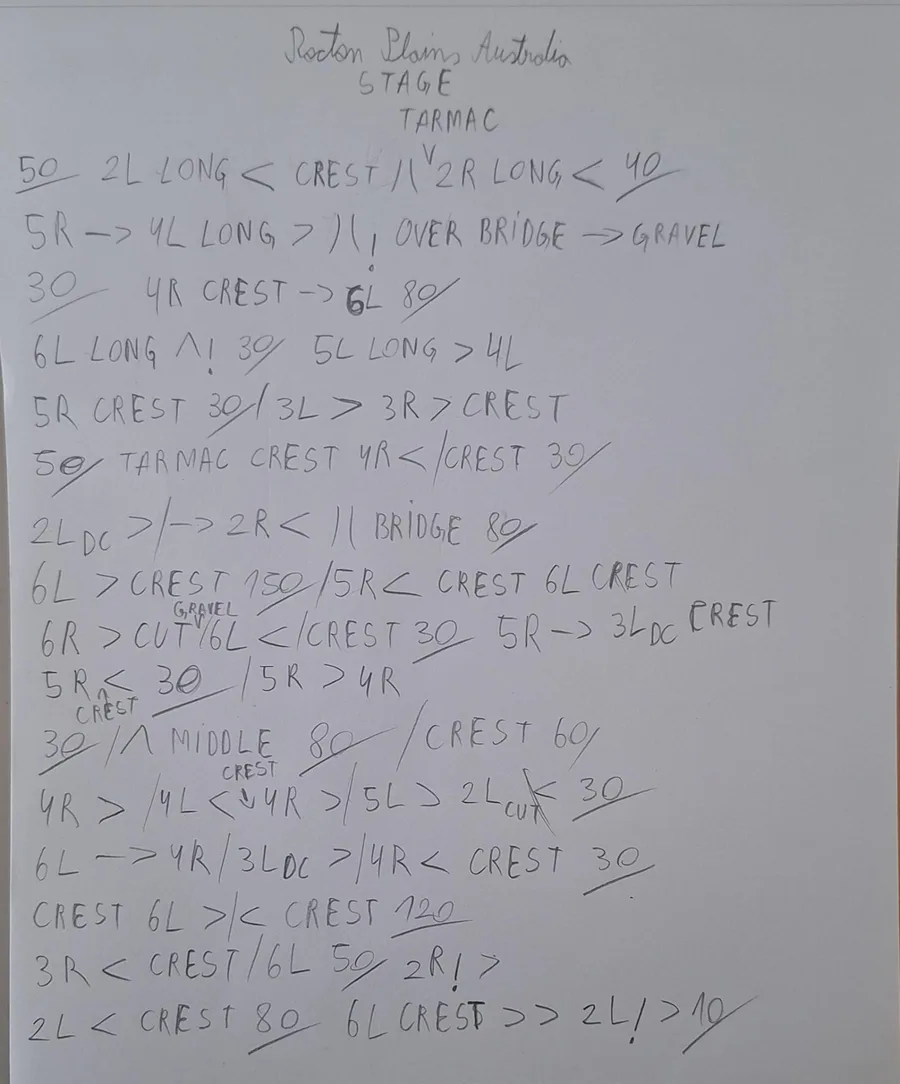 Rocton Plains Australia
STAGE
TARMAC
50 2L LONG < CREST /)( 2R LONG < 40
5R -> 4L LONG > )( ! OVER BRIDGE -> GRAVEL
30 4R CREST -> 6L 80/
6L LONG ^! 30/ 5L LONG > 4L
5R CREST 30/ / 3L > 3R > CREST
50/ TARMAC CREST 4R < /CREST 30/
2L DC >/-> 2R < )( BRIDGE 80/
6L > CREST 150 /5R < CREST 6L CREST
GRAVEL
6R > CUT /6L </CREST 30 5R -> 3L DC CREST
5R < 30 /5R > 4R
CREST
30/ /^ MIDDLE 80 /CREST 60/
CREST
4R > /4L < 4R >/5L > 2L CUT < 30
6L -> 4R/3L DC >/4R < CREST 30
CREST 6L >/< CREST 120
3R < CREST/6L 50/ 2R! >
2L < CREST 80 6L CREST >> 2L! > 10/